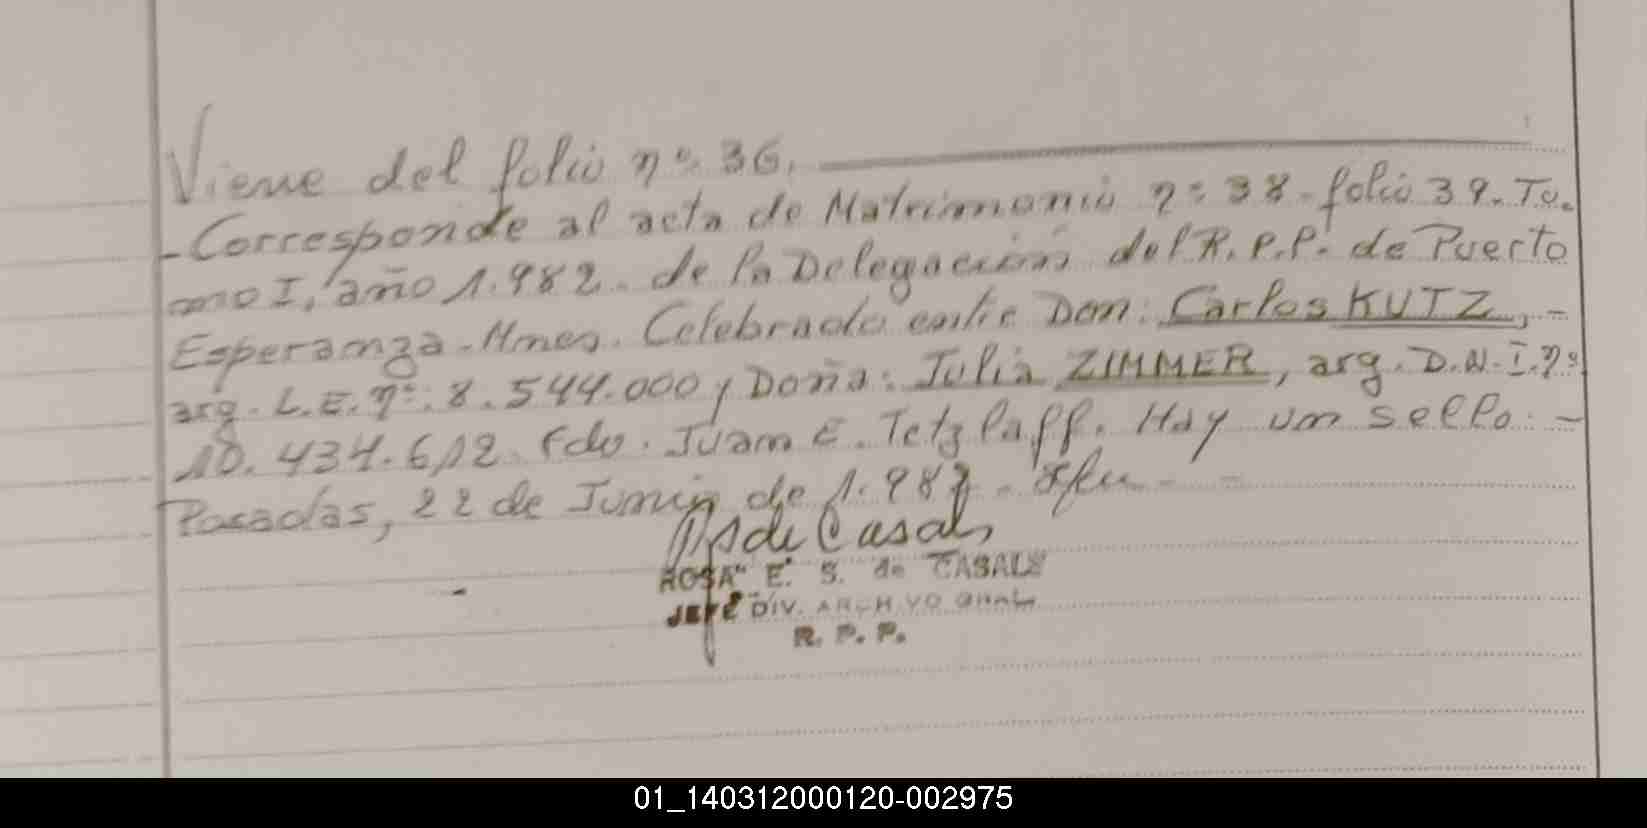 Viene del folio nº 36.
- Corresponde al acta de Matrimonio nº 38 - folio 39. To.
mo I, año 1.982. de la Delegación del R.P.P. de Puerto
Esperanza - Mnes. Celebrado entre Don: Carlos KUTZ, -
arg. L.E. nº: 8.544.000 y Doña: Julia ZIMMER, arg. D.N.I. nº
10.434.612. Fdo. Juan E. Tetzlaff. Hay un sello. -
Posadas, 22 de Junio de 1.987. -
de Casals
ROSA E. S. de CASALS
JEFE DIV. ARCHIVO GRAL
R. P. P.
01_140312000120-002975